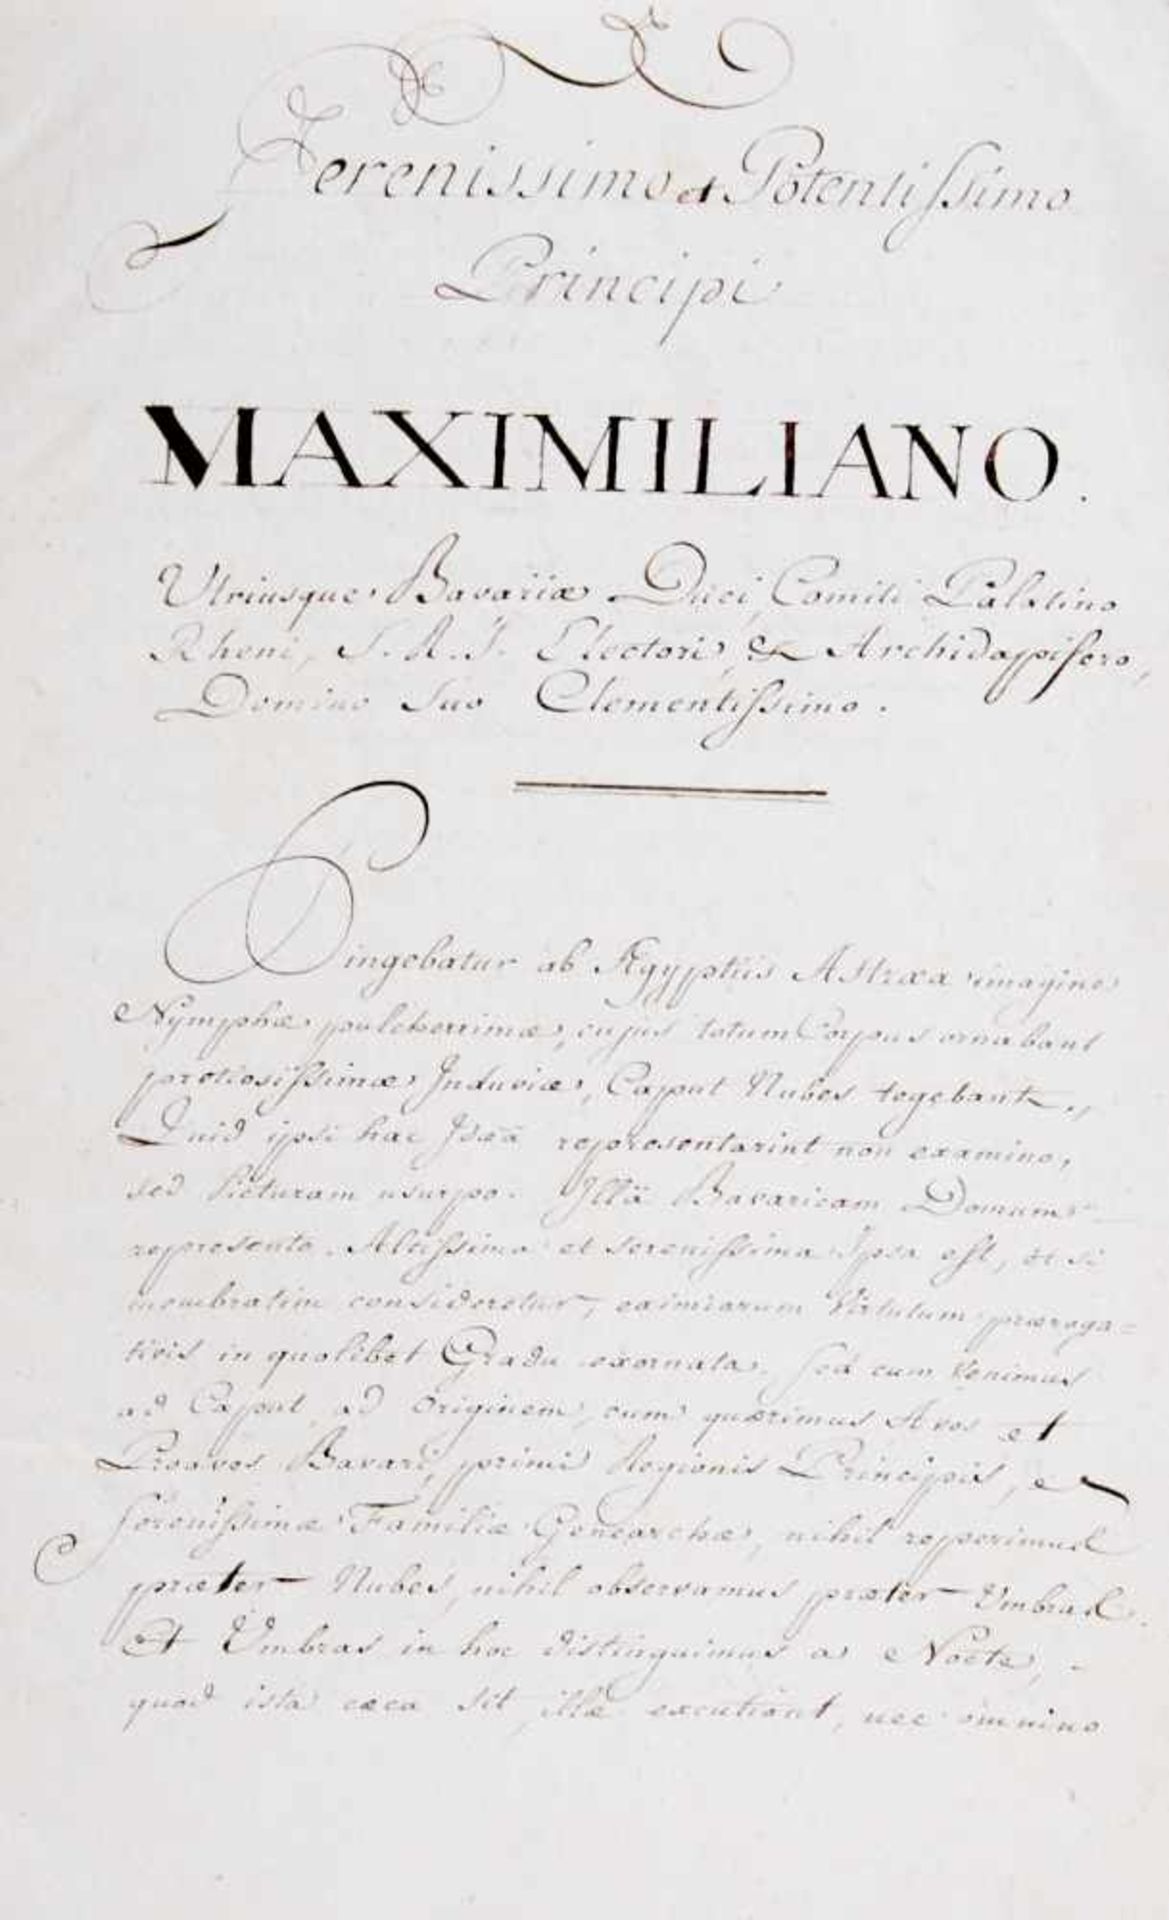 Serenissimo et Potentissimo
Principi
MAXIMILIANO.
Utriusque Bavariæ Duci, Comiti Palatino
Rheni, S. R. I. Electori, & Archidapifero,
Domino suo Clementissimo.
Pingebatur ab Ægyptiis Astræa imagine
Nymphæ pulcherrimæ, cujus totum Corpus ornabant
pretiosissimæ Induviæ, Caput Nubes tegebant.,
Quid ipsi hac Ideâ repræsentarint non examino,
sed Picturam usurpo. Illâ Bavaricam Domum
repræsento. Altissima et serenissima Ipsa est, et si
membratim consideretur, eximiarum Virtutum præroga=
tivis in quolibet Gradu exornata. Sed cum venimus
ad Caput, ad Originem, cum quærimus Avos et
Proavos Bavari, primi Regionis Principis, et
serenissimæ Familiæ Genearchæ, nihil repperimus
præter Nubes, nihil observamus præter Umbras.
Et Umbras in hoc distinguimus a Nocte, -
quod ista cæca sit, illæ excutiant, nec omnino